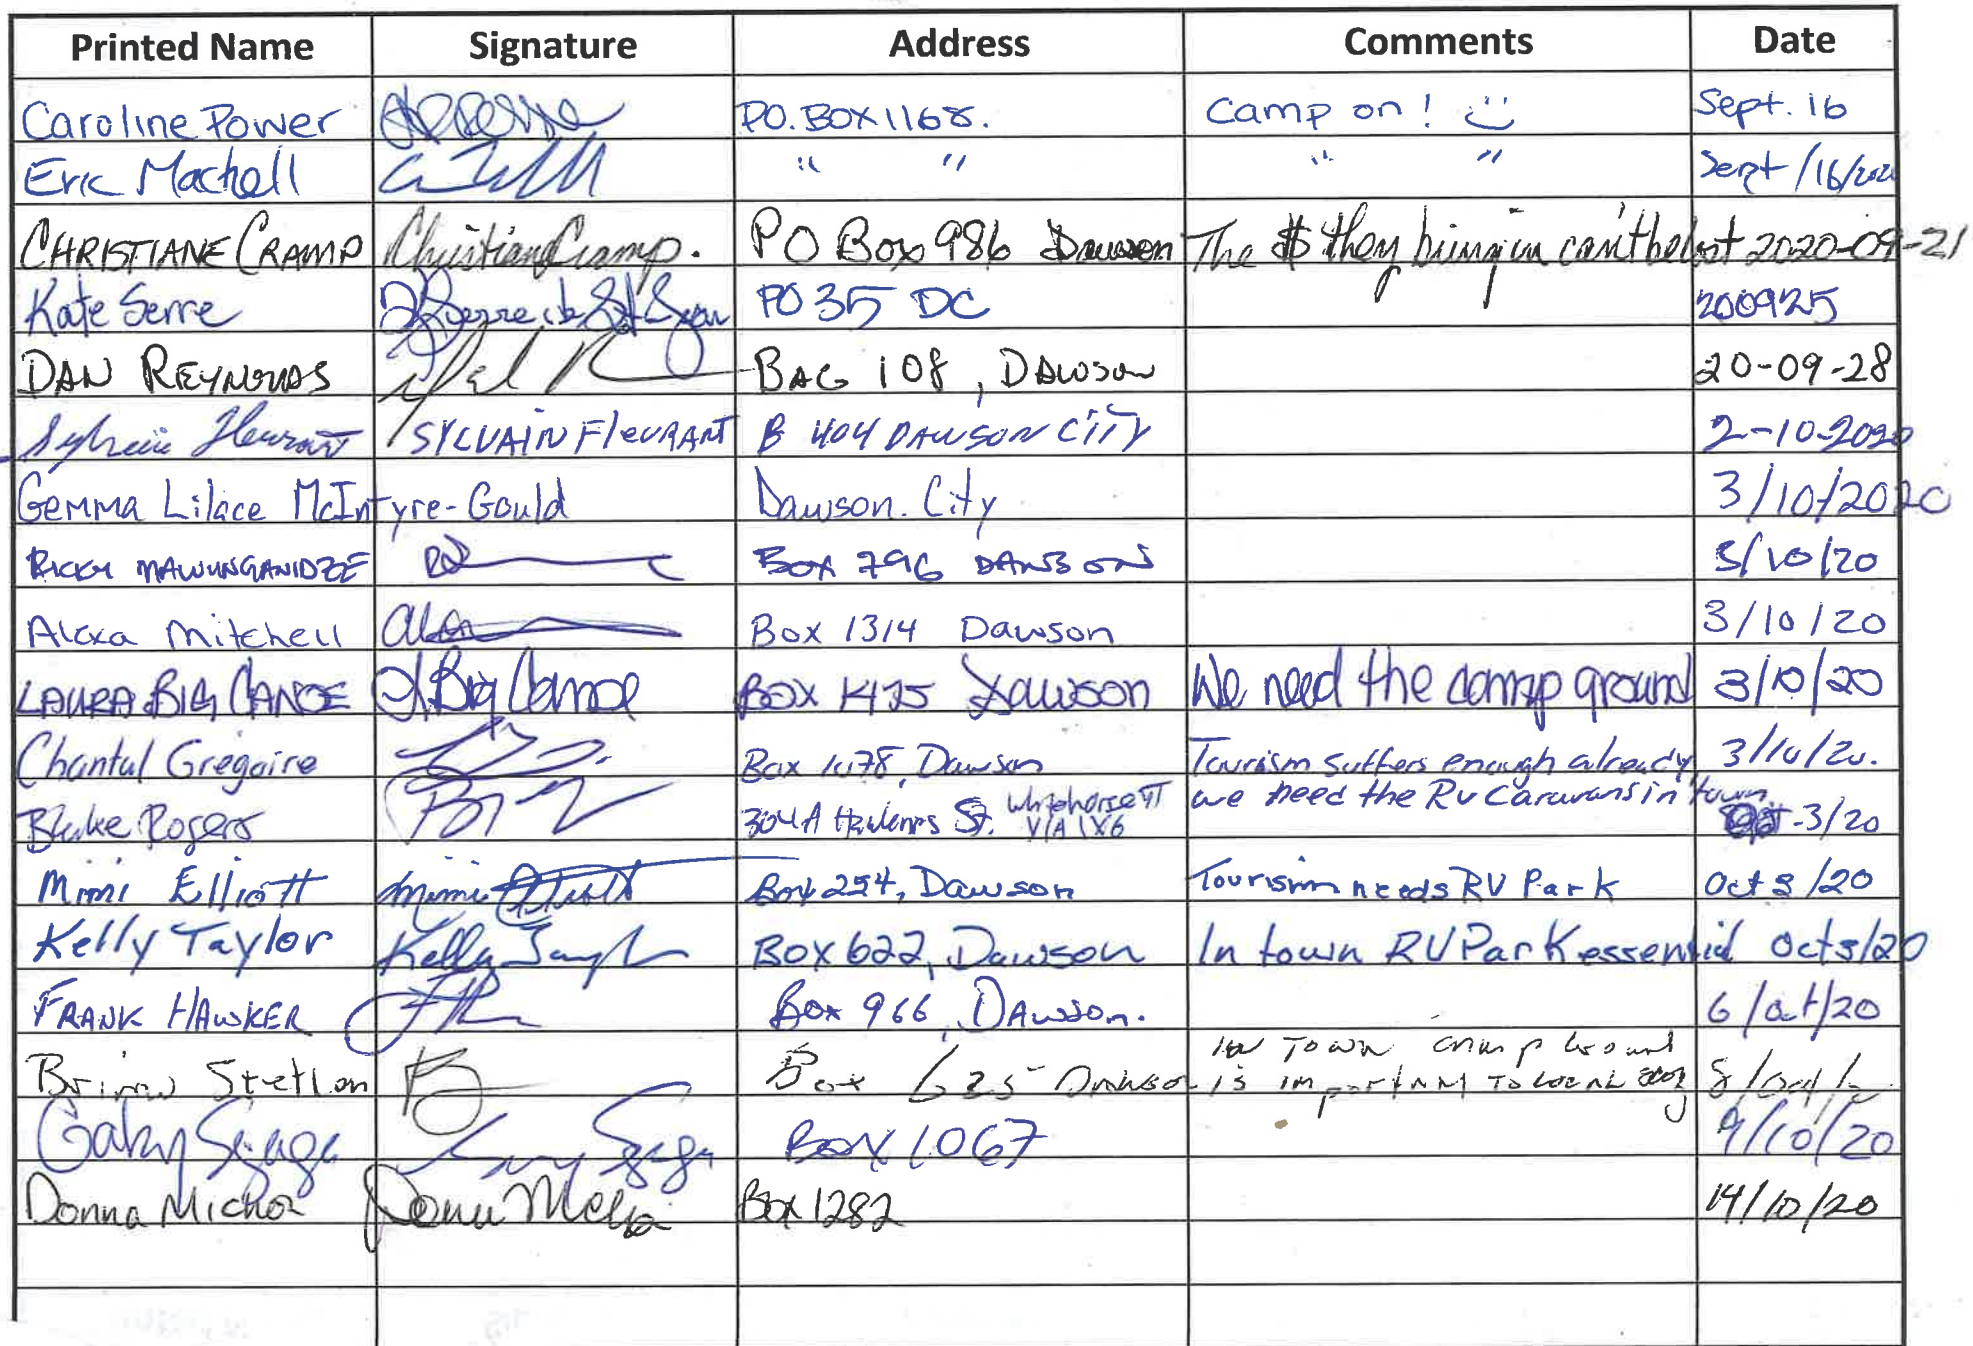 Printed Name Signature Address Comments Date
Caroline Power PO. BOX 1168. Camp on ! Sept. 16
Eric Machell " " " " Sept/16/2020
CHRISTIANE CRAMP Christiane Cramp. PO Box 986 Dawson The $ they bring in can't be lost 2020-09-21
Kate Serre PO 35 DC 200925
DAN REYNOLDS BAG 108, DAWSON 20-09-28
SYLVAIN FleURANT B 404 DAWSON CiTY 2-10-2020
Gemma Lilace McIntyre-Gould Dawson. City 3/10/2020
RICKY MAWUNGANIDZE BOX 796 DAWSON 3/10/20
Alexa Mitchell Box 1314 Dawson 3/10/20
LAURA BIG CANOE L. Big Canoe BOX 1475 Dawson We need the camp ground 3/10/20
Chantal Gregoire Box 1078, Dawson Tourism suffers enough already 3/10/20.
we need the RV Caravans in town
Blake Rogers 304A Hawkins St. Whitehorse YT Y1A 1X6 -3/20
Mimi Elliott Mimi Elliott Box 254, Dawson Tourism needs RV Park Oct 3/20
Kelly Taylor Kelly Taylor Box 622, Dawson In town RV Park essential Oct 3/20
FRANK HAWKER Box 966, DAWSON. 6/oct/20
IN TOWN Camp Ground
Brian Stetlon Box 625 Dawson is important to local 8/oct/
Gaby Sgaga Box 1067 9/10/20
Donna Michon Box 1282 14/10/20